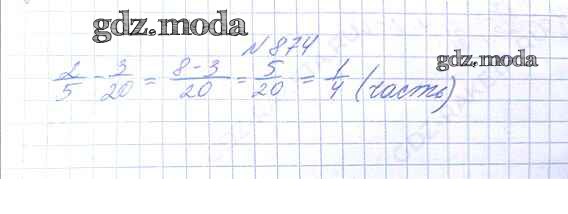 gdz.moda
№ 874
gdz.moda
2/5 - 3/20 = 8-3/20 = 5/20 = 1/4 (часть)